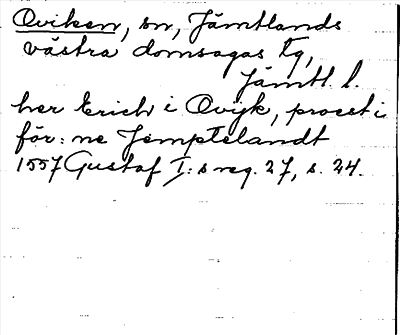 Oviken, sn, Jämtlands
västra domsagas tg,
Jämtl. l.
her Erich i Ovijk, prost i
för:ne Jemptelandt
1557 Gustaf I:s reg. 27, s. 24.